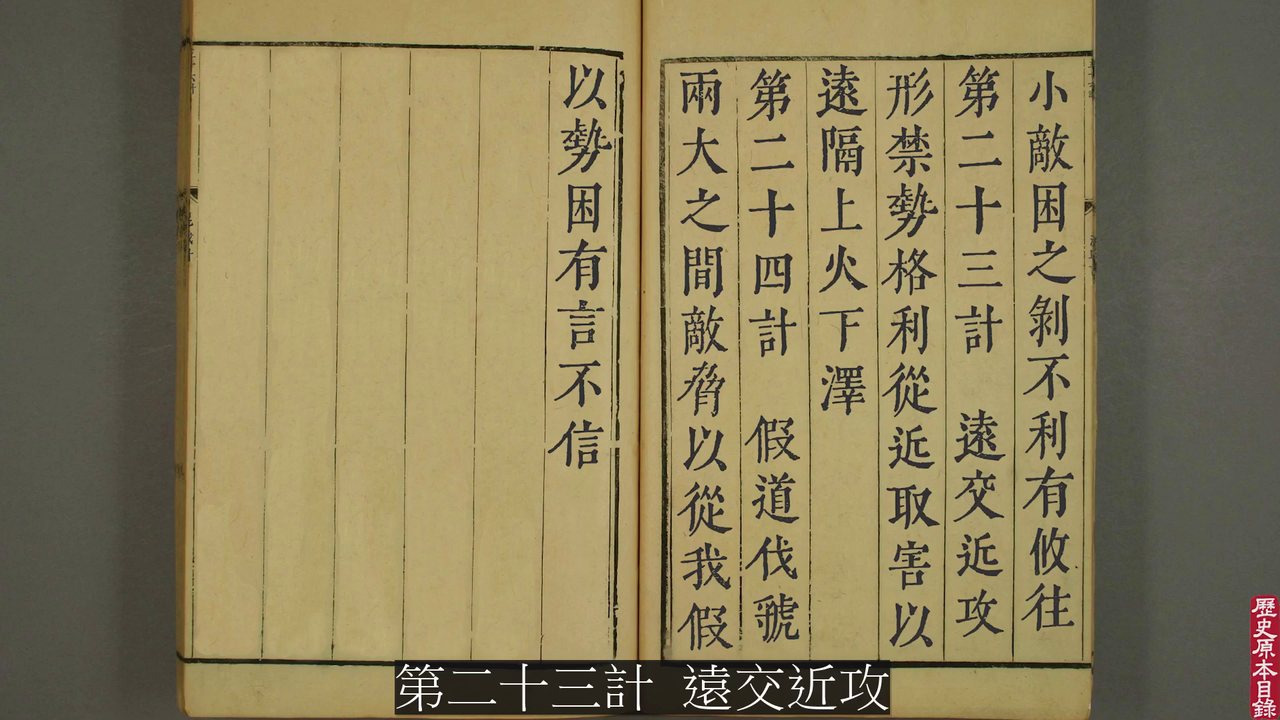 小敵困之剝不利有攸往
第二十三計　遠交近攻
形禁勢格利從近取害以
遠隔上火下澤
第二十四計　假道伐虢
兩大之間敵脅以從我假
以勢困有言不信
第二十三計 遠交近攻
歷史原本目錄